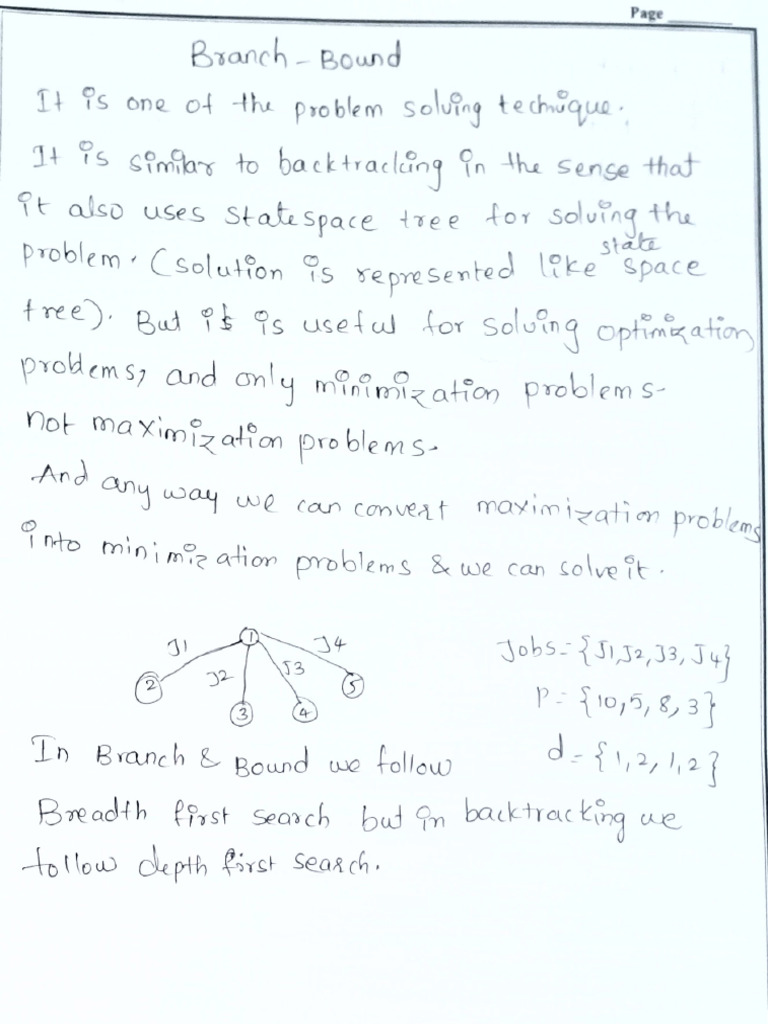 Page
Branch - Bound
It is one of the problem solving technique.
It is similar to backtracking in the sense that
it also uses state space tree for solving the
problem. (solution is represented like state space
tree). But it is useful for solving optimization
problems, and only minimization problems-
not maximization problems.
And any way we can convert maximization problems
into minimization problems & we can solve it.
J1 J2 J3 J4
1
2 3 4 5
Jobs = {J1, J2, J3, J4}
P = {10, 5, 8, 3}
d = {1, 2, 1, 2}
In Branch & Bound we follow
Breadth first search but in backtracking we
follow depth first search.